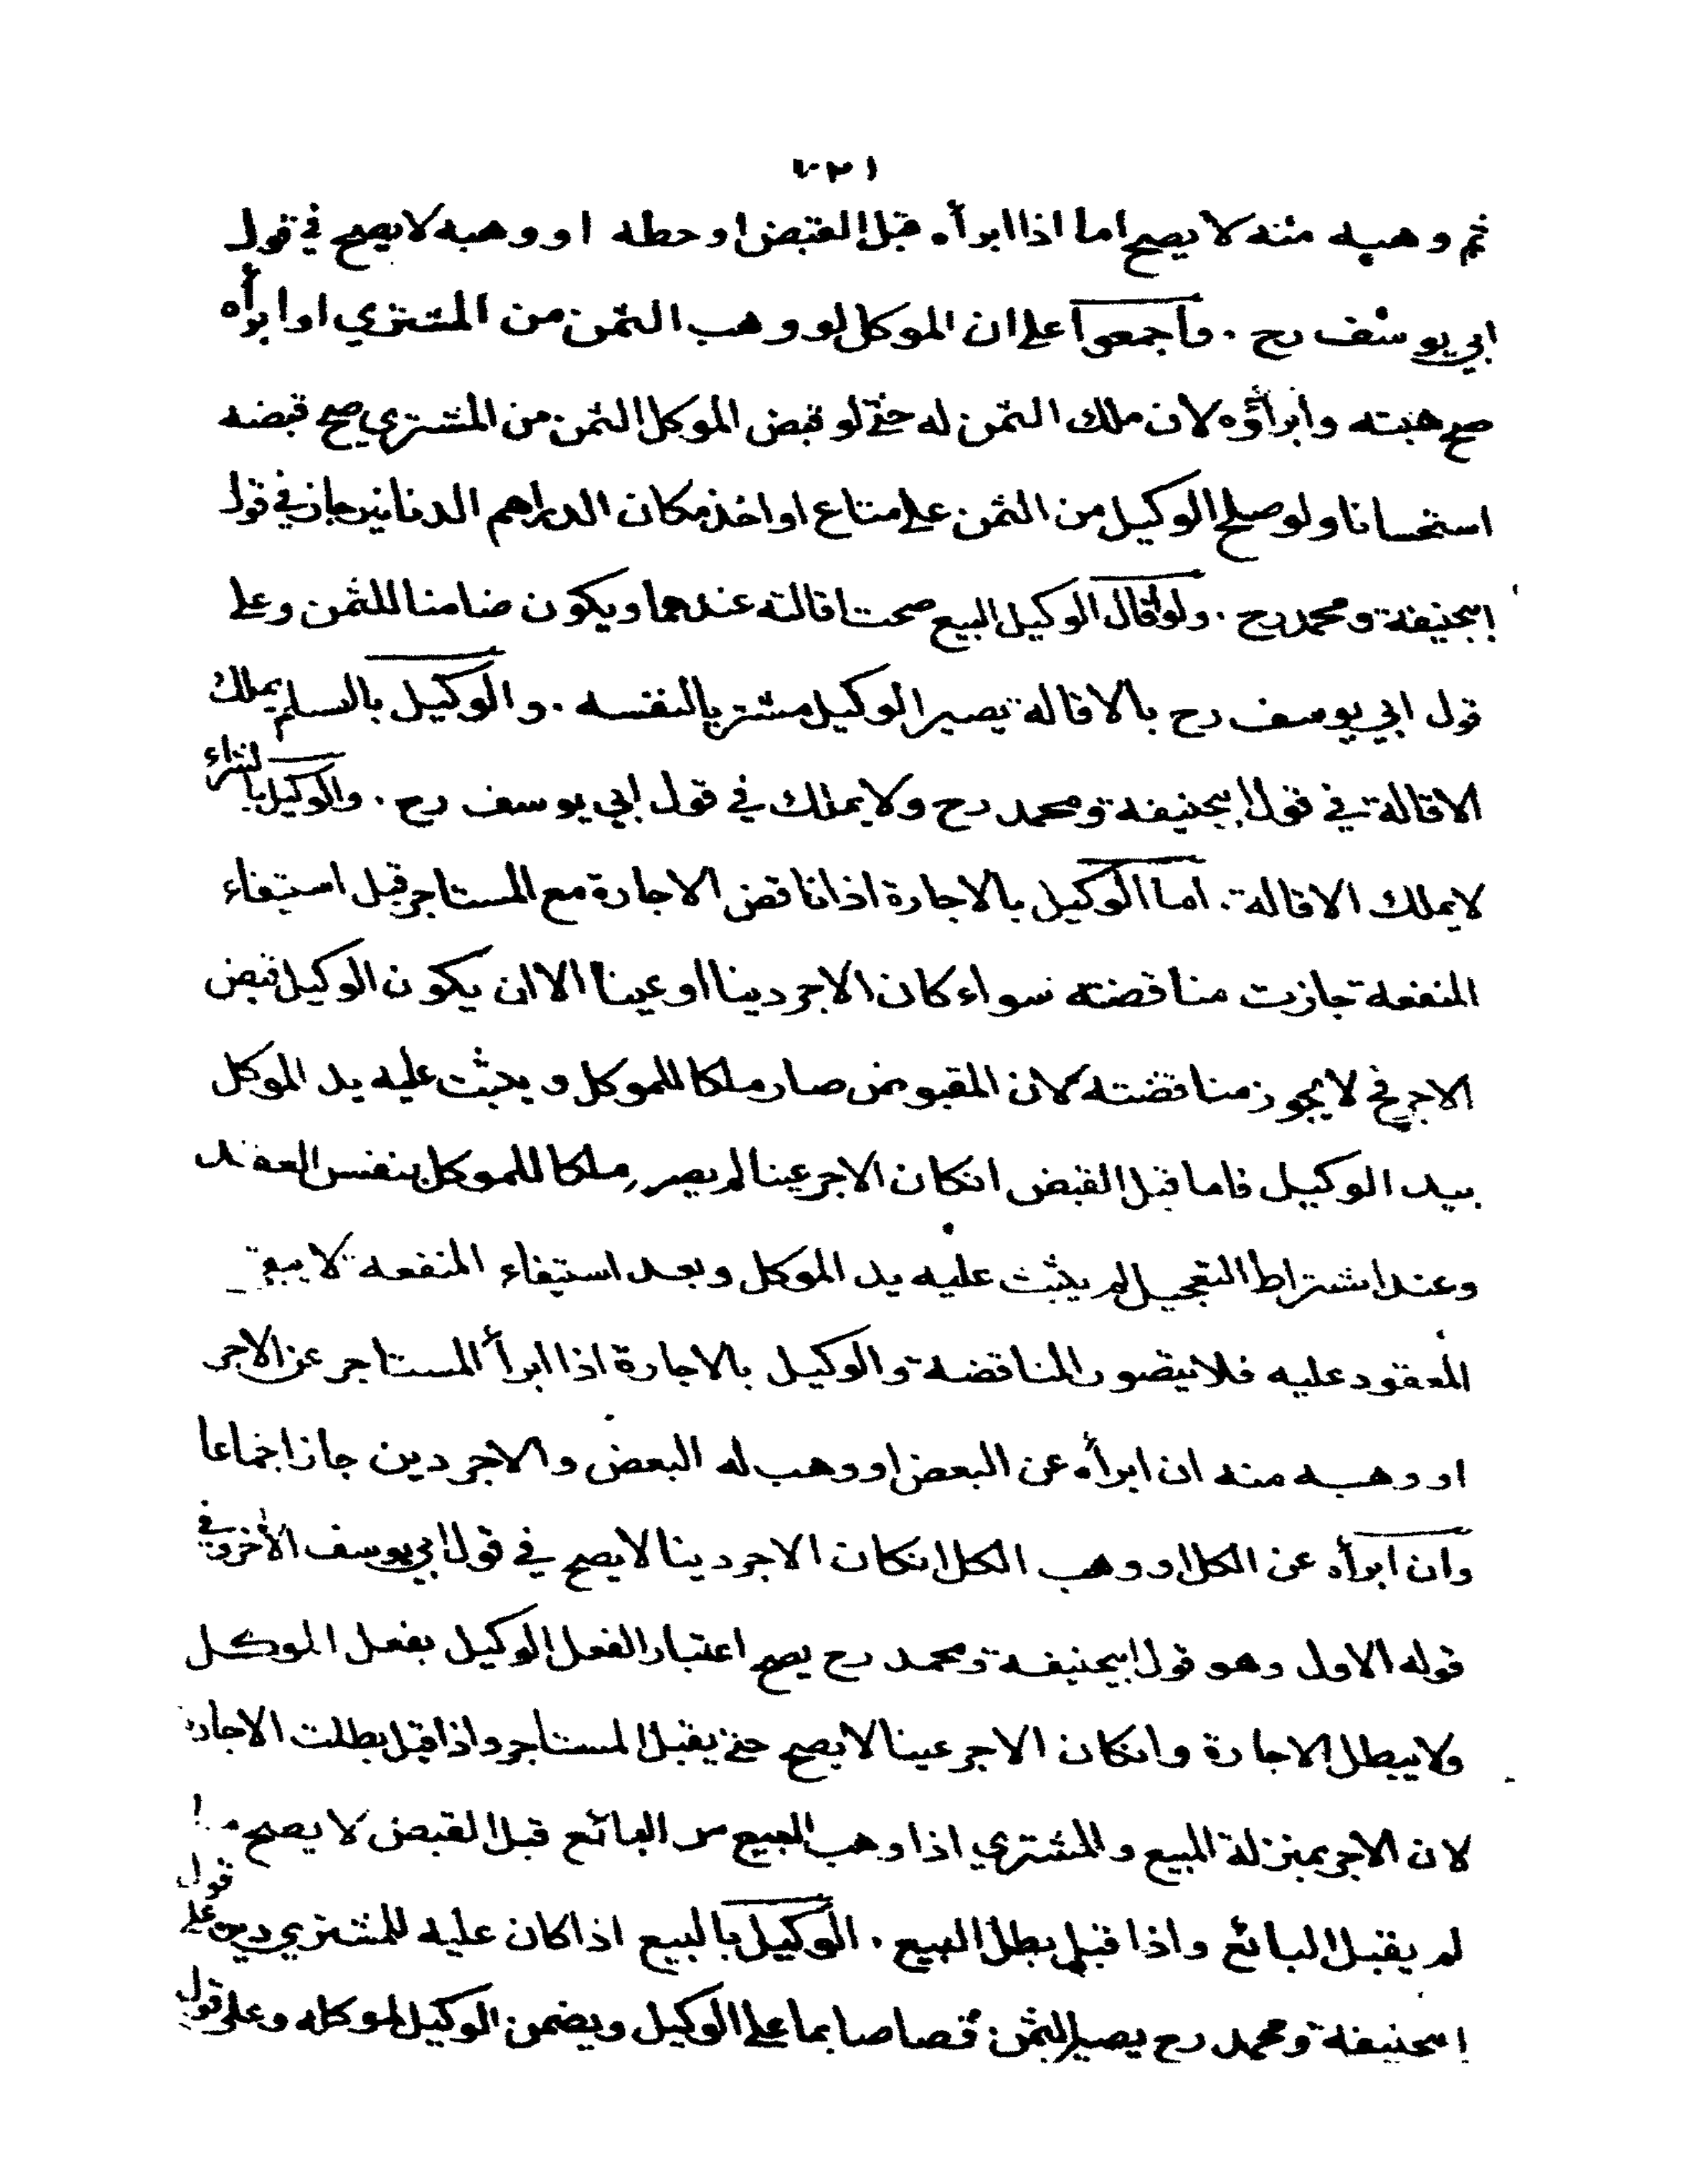 ثم وهبه منه لا يصح اما اذا ابرأه قبل القبض او حطه او وهبه لا يصح في قول
ابي يوسف رح . واجمعوا على ان الموكل لو وهب الثمن من المشتري او ابرأه
صح هبته وابراؤه لان ملك الثمن له حتى لو قبض الموكل الثمن من المشتري صح قبضه
استحسانا ولو صلح الوكيل من الثمن على متاع او اخذ مكان الدراهم الدنانير جاز في قول
ابيحنيفة ومحمد رح . ولو اقال الوكيل البيع صحت اقالته عندهما ويكون ضامنا للثمن وعلى
قول ابي يوسف رح بالاقالة يصير الوكيل مشتريا لنفسه . والوكيل بالسلم يملك
الاقالة في قول ابيحنيفة ومحمد رح ولا يملك في قول ابي يوسف رح . والوكيل بالشراء
لا يملك الاقالة . اما الوكيل بالاجارة اذا ناقض الاجارة مع المستاجر قبل استيفاء
المنفعة جازت مناقضته سواء كان الاجر دينا او عينا الا ان يكون الوكيل قبض
الاجر فح لا يجوز مناقضته لان المقبوض صار ملكا للموكل ويثبت عليه يد الموكل
بيد الوكيل فاما قبل القبض انكان الاجر عينا لم يصر ملكا للموكل بنفس العقد
وعند اشتراط التعجيل لم يثبت عليه يد الموكل وبعد استيفاء المنفعة لا يبقى
المعقود عليه فلا يتصور المناقضة والوكيل بالاجارة اذا ابرأ المستاجر عن الاجر
او وهبه منه ان ابرأه عن البعض او وهب له البعض والاجر دين جاز اجماعا
وان ابرأه عن الكل او وهب الكل انكان الاجر دينا لا يصح في قول ابي يوسف الآخر وفي
قوله الاول وهو قول ابيحنيفة ومحمد رح يصح اعتبارا لفعل الوكيل بفعل الموكل
ولا يبطل الاجارة وانكان الاجر عينا لا يصح حتى يقبل المستاجر واذا قبل بطلت الاجارة
لان الاجر بمنزلة المبيع والمشتري اذا وهب المبيع من البائع قبل القبض لا يصح ما
لم يقبل البائع واذا قبل بطل البيع . الوكيل بالبيع اذا كان عليه للمشتري دين على قول
ابيحنيفة ومحمد رح يصير الثمن قصاصا بما على الوكيل ويضمن الوكيل لموكله وعلى قول